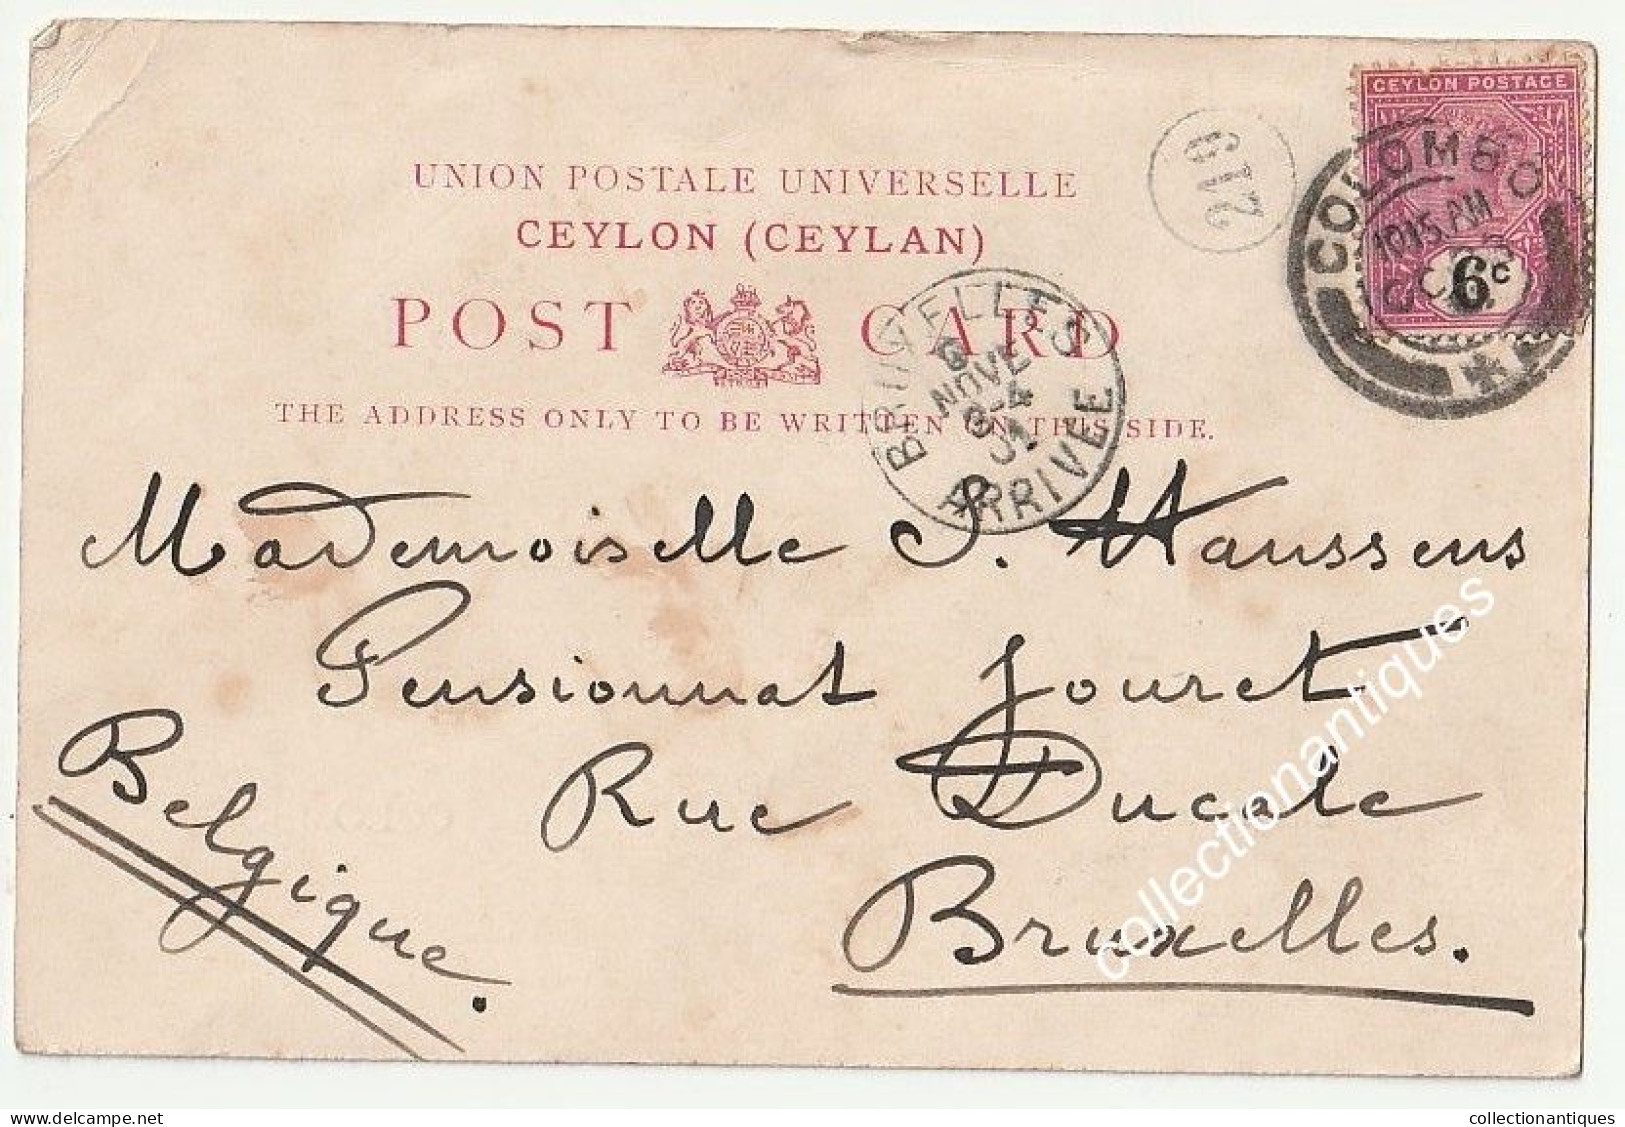 CEYLON POSTAGE
6c
COLOMBO
10.15 AM
OC
219
UNION POSTALE UNIVERSELLE
CEYLON (CEYLAN)
POST CARD
THE ADDRESS ONLY TO BE WRITTEN ON THIS SIDE.
BRUXELLES
NOVE
8-4
ARRIVEE
Mademoiselle J. Haussens
Pensionnat Jouret
Rue Ducale
Bruxelles.
Belgique.
collectionantiques
collectionantiques